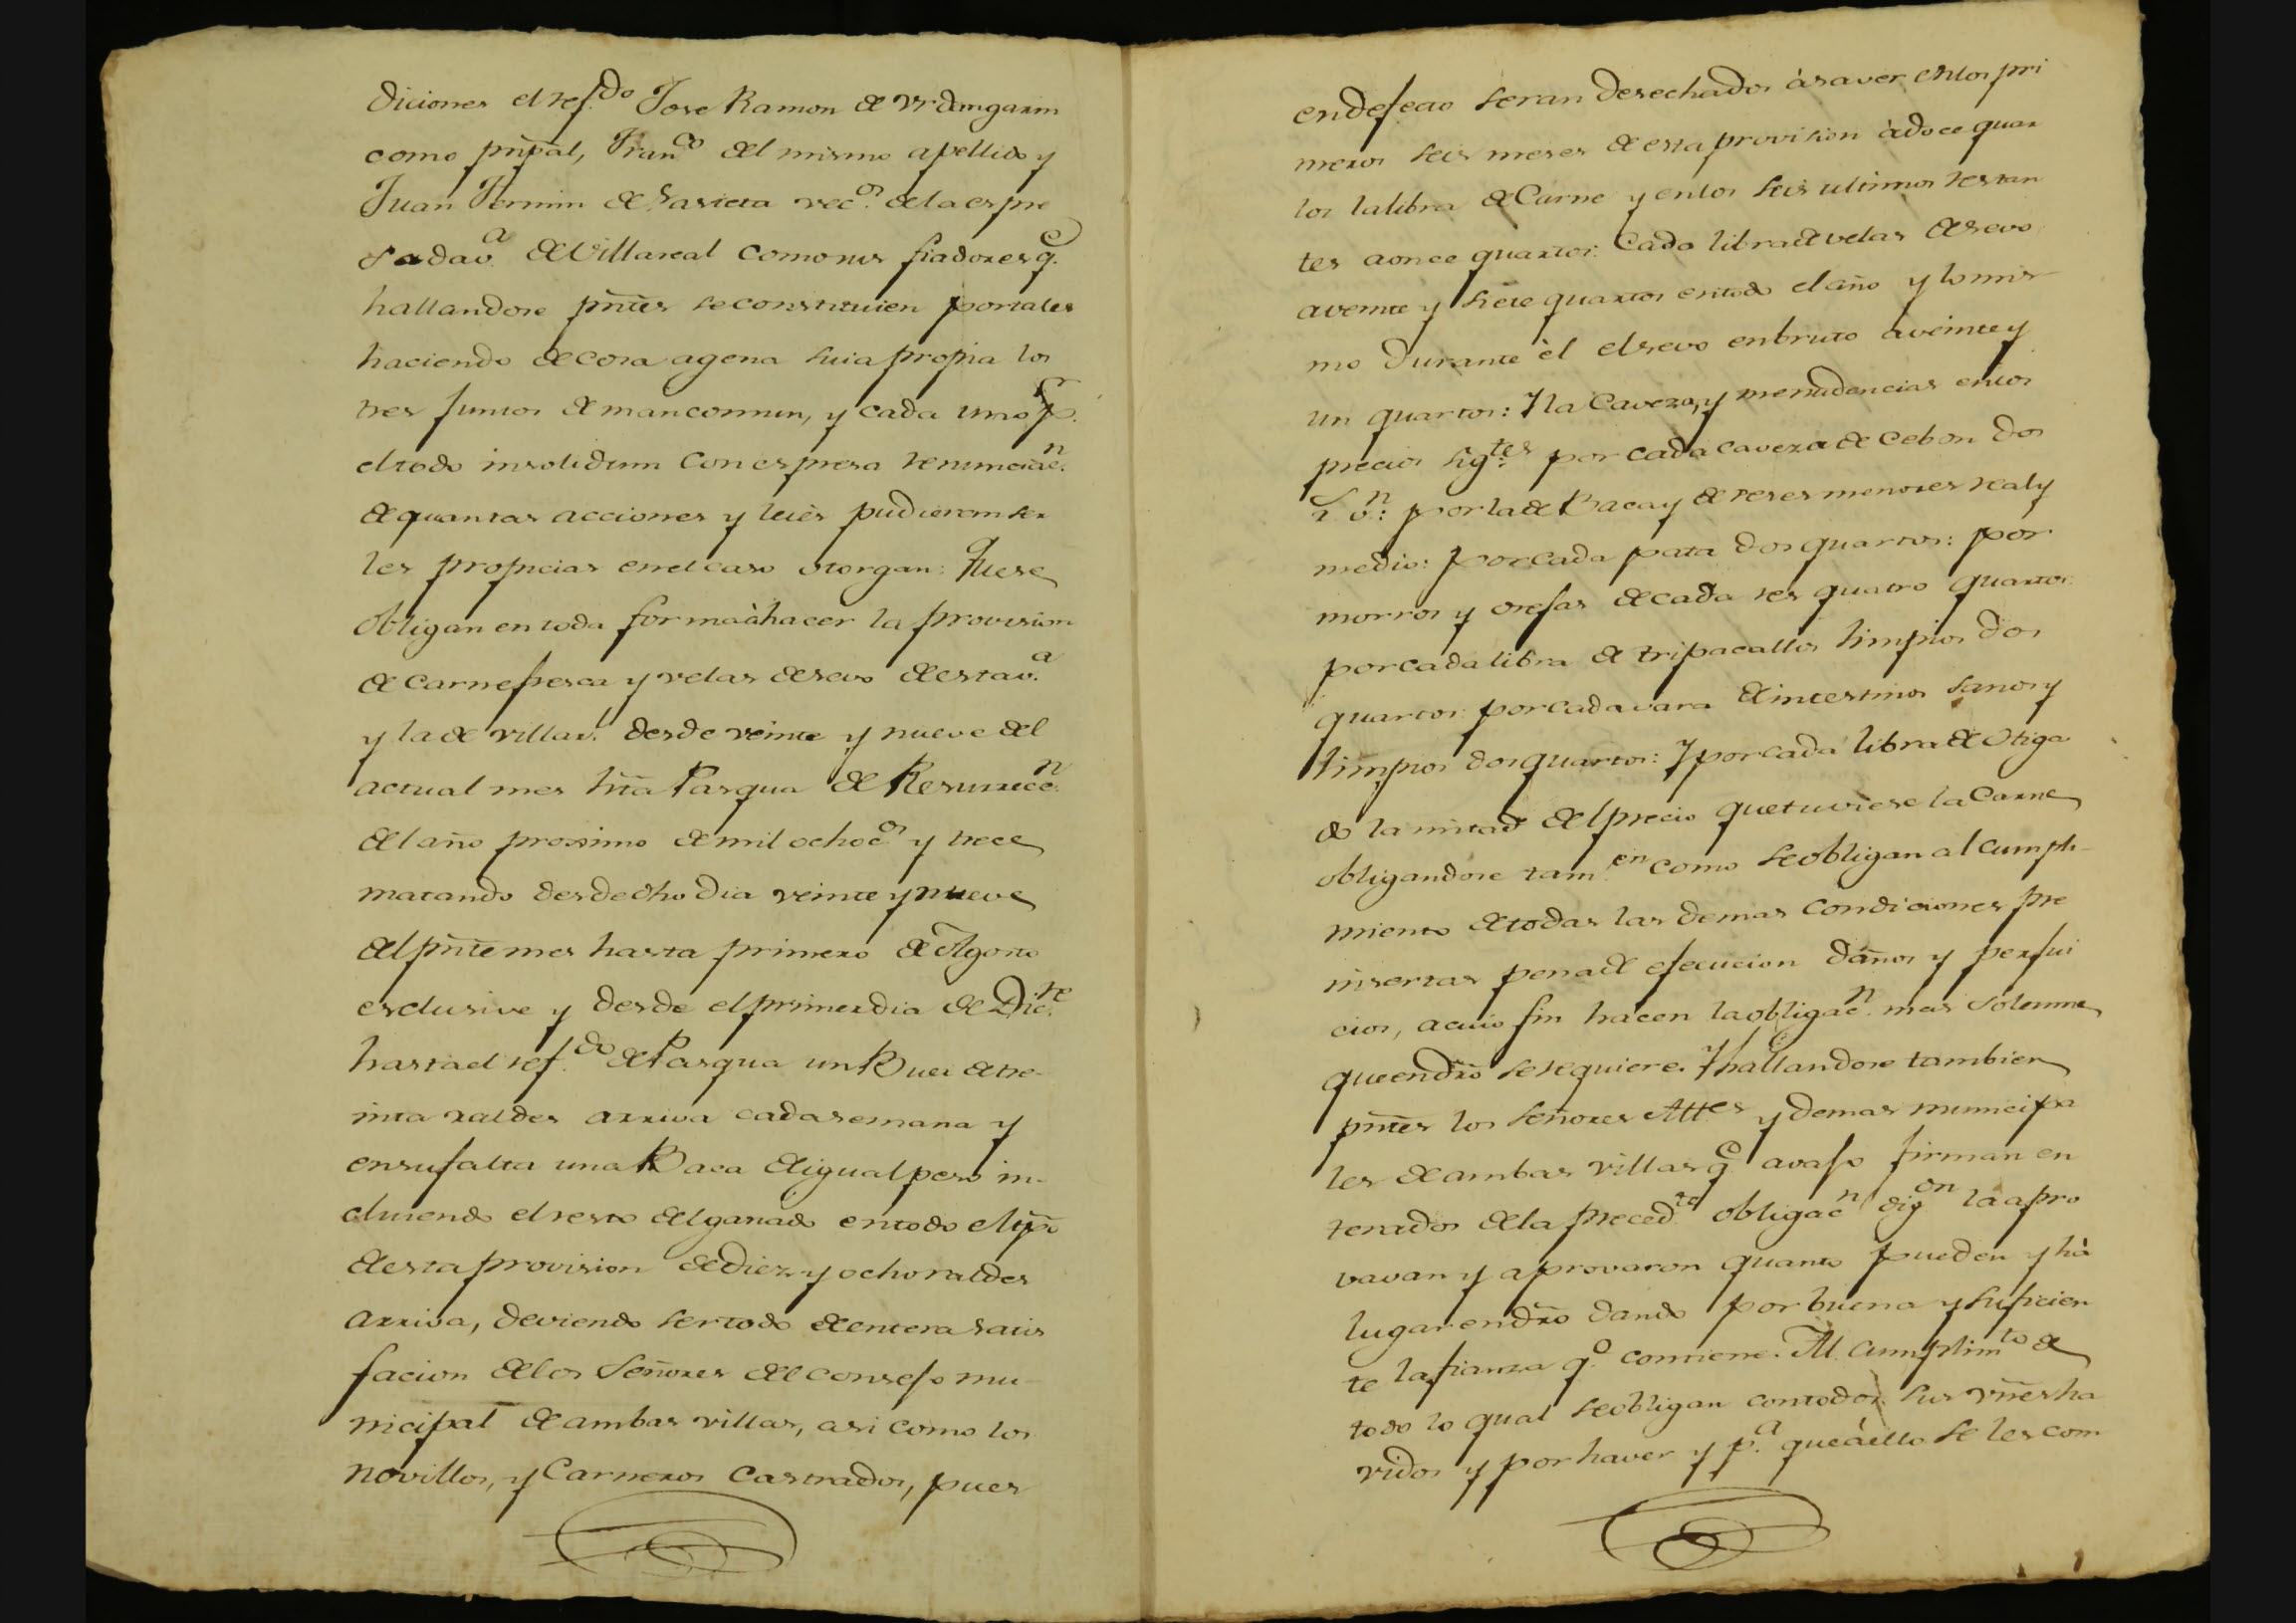 diciones el ref.do Jose Ramon de Urdangarin
como pñpal, Fran.co del mismo apellido y
Juan Fermin de Lasieta vec.os de la espre
sada v.a de Villareal como sus fiadores q.e
hallandose pñtes se constituien por tales
haciendo de cosa agena suia propia los
tres juntos de mancomun, y cada uno p.r
el todo insolidum con espresa renunciac.n
de quantas acciones y leies pudieran ser
les propicias en el caso otorgan: Que se
obligan en toda forma à hacer la provision
de carne fresca y velas de sevo de esta v.a
y la de Villar.l desde veinte y nueve del
actual mes hta Pasqua de Resurrecc.n
del año proximo de mil ochoc.os y trece
matando desde dho dia veinte y nueve
del pñte mes hasta primero de Agosto
esclusive y desde el primer dia de Dic.re
hasta el ref.do de Pasqua un Buei de tre-
inta raldes arriva cada semana y
en su falta una Baca de igual peso in-
cluiendo el resto del ganado en todo el tpo
de esta provision de diez y ocho raldes
arriva, deviendo ser todo de entera satis
facion de los Señores del consejo mu-
nicipal de ambas villas, asi como los
novillos, y Carneros castrados, pues
en defecto seran desechados à saver, en los pri
meros seis meses de esta provision à doce quar
tos la libra de Carne y en los seis ultimos restan
tes a once quartos: Cada libra de velas de sevo
a veinte y siete quartos en todo el año y lo mis
mo durante èl el sevo en bruto a veinte y
un quartos: Y la Caveza, y menudencias en los
precios sig.tes por cada caveza de cebon dos
r.s v.n: por la de Baca y de reses menores real y
medio: por cada pata dos quartos: por
morros y orejas de cada res quatro quartos:
por cada libra de tripacallos limpios dos
quartos: por cada vara de intestinos sanos y
limpios dos quartos: Y por cada libra de Otiga
do la mitad del precio que tuviese la Carne
obligandose tam.en como se obligan al cumpli-
miento de todas las demas condiciones pre
insertas pena de ejecucion daños y perjui
cios, a cuio fin hacen la obligac.n mas solemne
que en dro se requiere. Y hallandose tambien
pñtes los Señores Att.es y demas municipa
les de ambas villas q.e avajo firman en
terados de la preced.te obligac.n dig.on la apro
vavan y aprovaron quanto pueden y hà
lugar en dro dando por buena y suficien
te la fianza q.e contiene. Al cumplim.to de
todo lo qual se obligan con todos sus vñes ha
vidos y por haver y p.a que à ello se les com